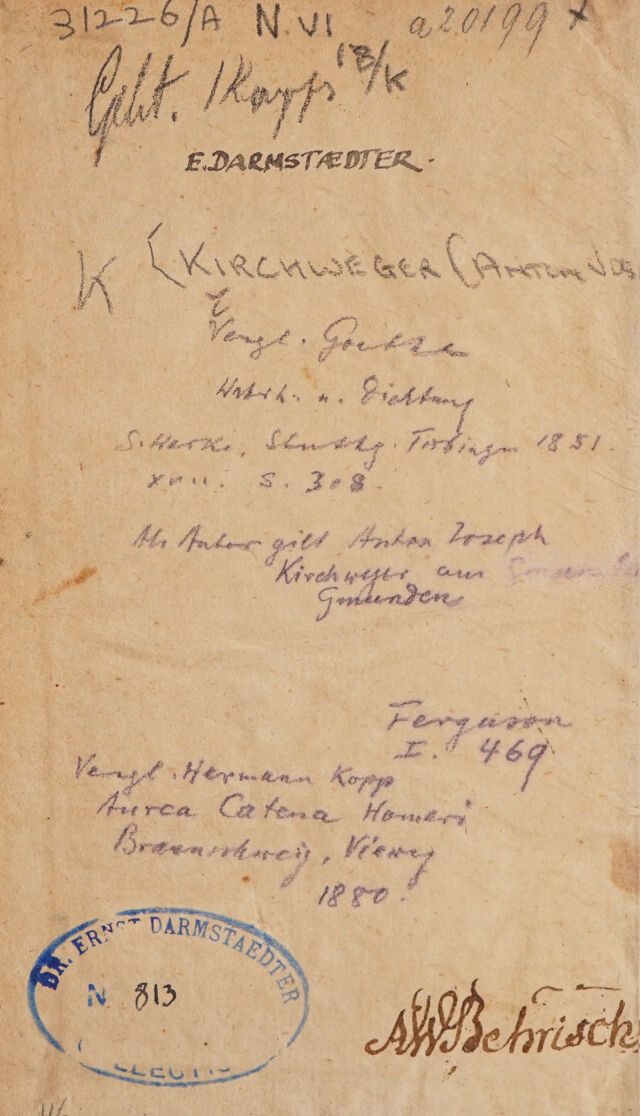 31226/A N.VI a20199 x
Geht. 1 Kopfs 18/K
E. DARMSTÆDTER.
K [KIRCHWEGER (ANTON JOS
Vergl. Goethe
Wahrh. u. Dichtung
S. Werke, Stuttg. Tübingen 1851.
XVII. S. 308.
Als Autor gilt Anton Joseph
Kirchweger aus
Gmunden
Ferguson
I. 469
Vergl. Hermann Kopp
Aurea Catena Homeri
Braunschweig, Vieweg
1880.
DR. ERNST DARMSTAEDTER
N 813
COLLECTIO
AWBehrisch